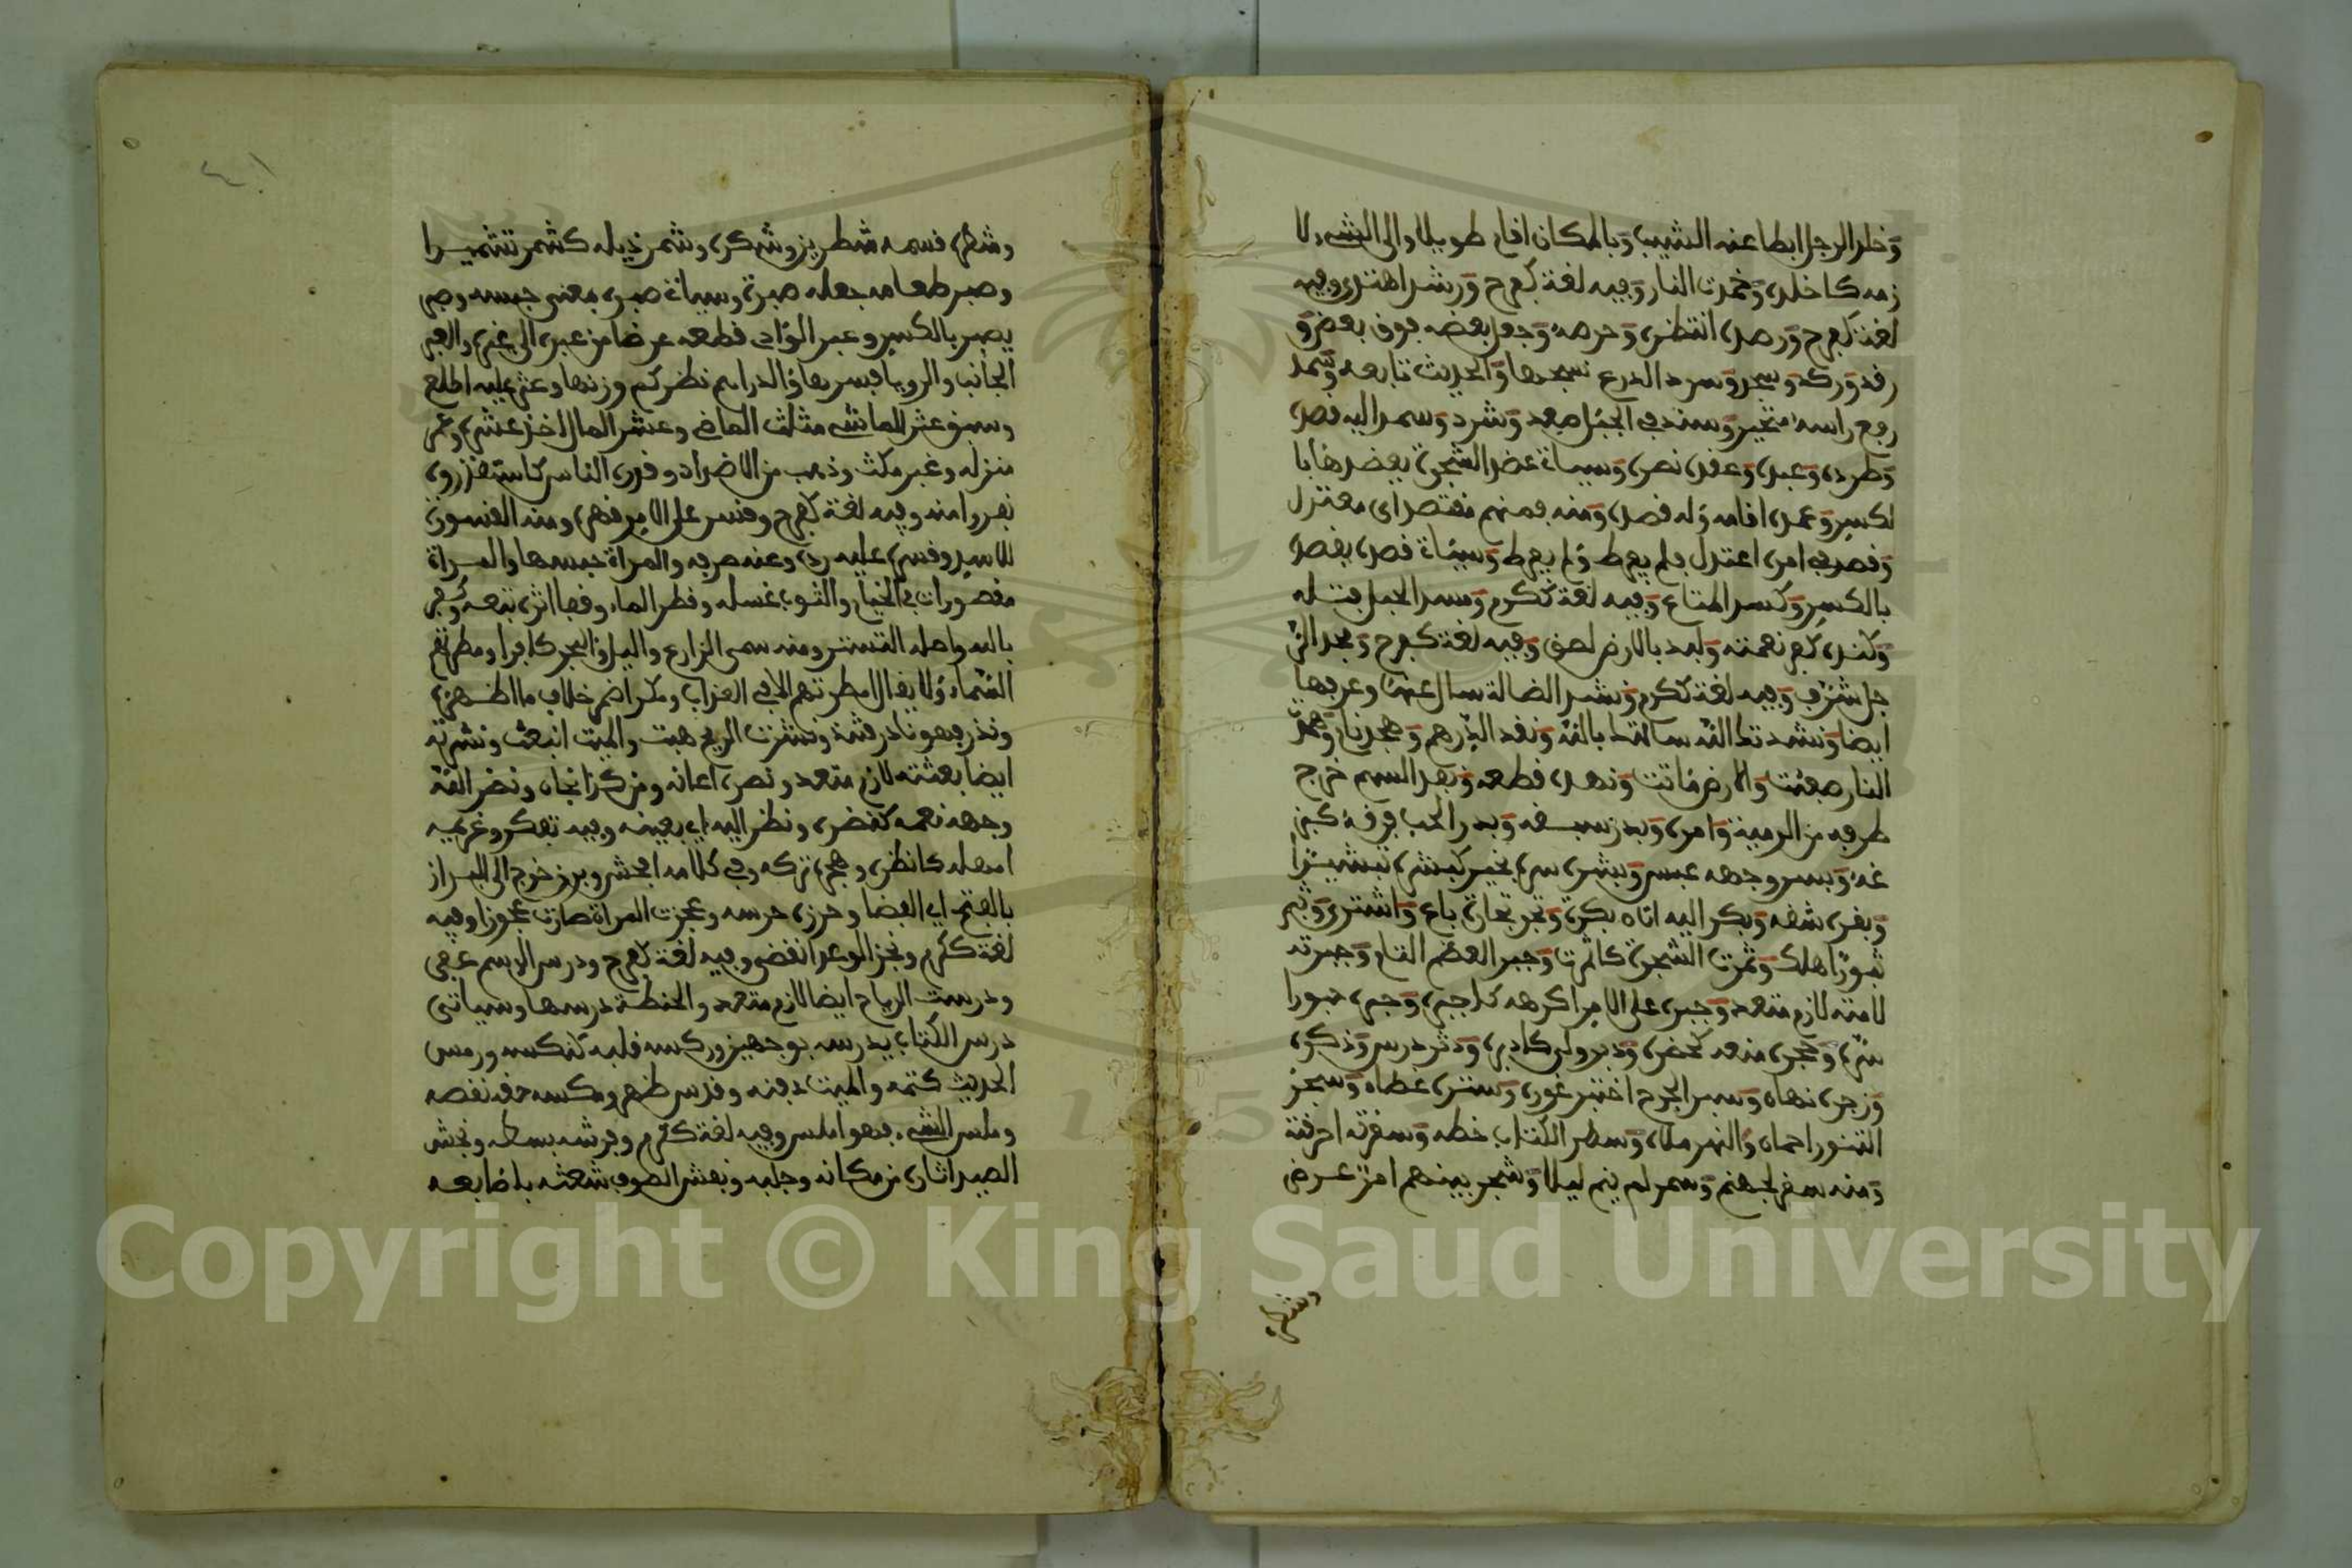 وخلد الرجل ابطا عنه الشيب وبالمكان اقام طويلا والى الشيء لا
زمه كاخلد وخمدت النار وفيه لغة كفرح ورشد اهتدى وفيه
لغة كفرح ورصد انتظر وحرصه وجعل بعضه فوق بعض و
رقد وركد وسجد وسرد الدرع نسجها والحديث تابعه وسمد
رفع راسه متحير وسند في الجبل صعد وشرد وصمد اليه قصد
وطرده وعبد وعقد نصر وسياة عضد الشجرة يعضدها با
لكسر وعمد اقامه وله قصد ومنه فمنهم مقتصد اى معتدل
وقصد في امره اعتدل فلم يفرط ولم يفرط وسياة قصد يقصد
بالكسر وكسد المتاع وفيه لغة ككرم ومسد الحبل فتله
وكند كفر نعمته ولبد بالارض لصق وفيه لغة كفرح ومجد الر
جل شرف وفيه لغة ككرم ونشد الضالة سال عنها وعرفها
ايضا ونشدتك الله سالتك بالله ونقد الدرهم وهجد نام وهمدت
النار طفئت والارض ماتت ونهد قطعه ونفذ السهم خرج
طرفه من الرمية وامر وبدر سبقه وبذر الحب فرقه كبز
غه وبسر وجهه عبس وبشر سره بخير كبشره تبشيرا
وبقر شقه وبكر اليه اتاه بكرة وتجر تجارة باع واشترى وثبر
ثبورا هلك وثمرت الشجرة كاثمرت وجبر العظم التام وجبرته
لامته لازم متعد وجبر على الامر اكرهه كاجبره وحبر حبورا
سره وحجر منعه كحضر ودبر ولى كادبر ودثر درس وذكر
وزجر نهاه وسبر الجرح اختبر غوره وستر غطاه وسجر
التنور احماه والنهر ملاه وسطر الكتاب خطه وسقرته احرقته
ومنه سقر لجهنم وسمر لم ينم ليلا وشجر بينهم امر عرض
وشطره
٤١
وشطره قسمه شطرين وشكر وشمر ذيله كشمر تشميرا
وصبر طعامه جعله صبرة وسياة صبر بمعنى حبسه وصر
يصبر بالكسر وعبر الوادى قطعه عرضا من عبره الى غيره والعبر
الجانب والرويا فسرها والدراهم نظر كم وزنها وعثر عليه اطلع
وسبق عثر للماشي مثلث الماضي وعشر المال اخذ عشره وعمر
منزله وغبر مكث وذهب من الاضداد وقدر الناس كاستقذروه
نفروا منه وفيه لغة كفرح وقسر على الامر قهره ومنه القسورة
للاسد وقسره عليه رده وعنه صرفه والمراة حبسها والمراة
مقصورات في الخيام والثوب غسله وقطر الماء وقفا اثره تبعه وكفر
بالله واصله التستر ومنه سمى الزارع والليل والبحر كافرا ومطرتهم
السماء ولا يقال امطرتهم الا في العذاب ومكر اضمر خلاف ما اظهره
وندر فهو نادر قلة ونشرت الريح هبت والميت انبعث ونشرته
ايضا بعثته لازم متعد ونصر اعانه ومن كذا نجاه ونضر الله
وجهه نعمه كنضره ونظر اليه اي بعينه وفيه تفكر وغريمه
امهله كانظره وهجره تركه وفي كلامه افحش وبرز خرج الى البراز
بالفتح اي الفضا وحرزه حرسه وعجزت المراة صارت عجوزا وفيه
لغة ككرم ونجز الوعد انقضى وفيه لغة كفرح ودرس الرسم عفى
ودرسته الرياح ايضا لازم متعد والحنطة درسها وسياتى
درس الكتاب يدرسه بوجهين وركسه قلبه كنكسه ورمس
الحديث كتمه والميت دفنه وقدس طهر ومكسه حقه نقصه
وملس الشيء فهو املس وفيه لغة ككرم وفرشه بسطه ونجش
الصيد اثاره من مكانه وجلبه ونفش الصوف شعثه باصابعه
Copyright © King Saud University